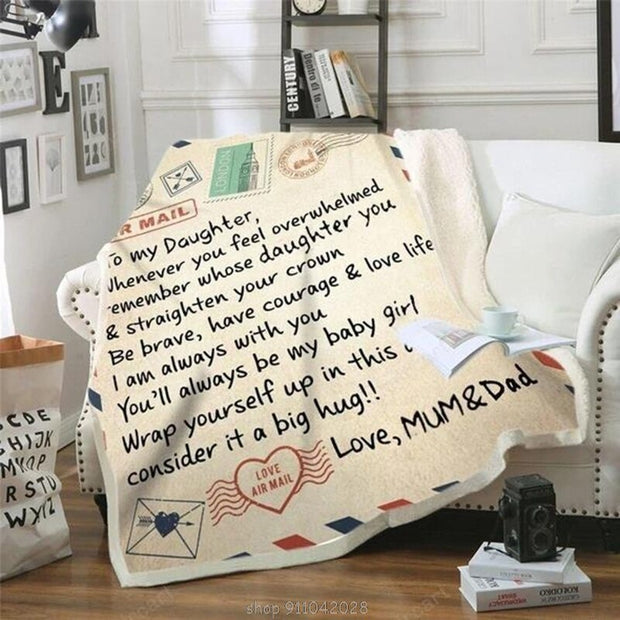 CENTURY
LONDON
R MAIL
o my Daughter,
Whenever you feel overwhelmed
remember whose daughter you
& straighten your crown
Be brave, have courage & love life
I am always with you
You'll always be my baby girl
Wrap yourself up in this
consider it a big hug!!
Love, MUM&Dad
LOVE
AIR MAIL
E
CDE
SHIJK
shop 911042028